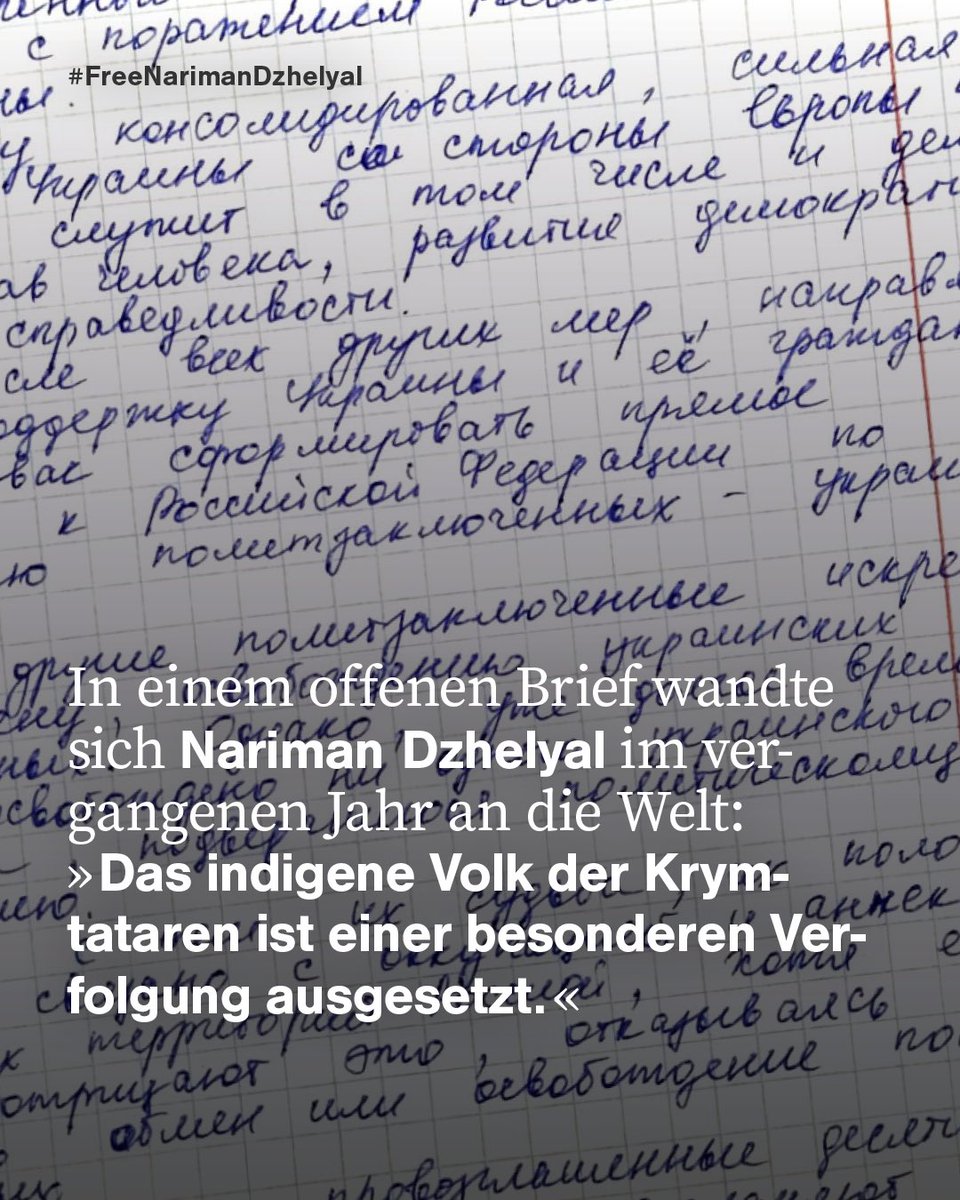 с поражением
#FreeNarimanDzhelyal
консолидированная, сильная
Украины со стороны Европы
служит в том числе и
человека, развития
справедливости.
всех других мер,
Украины и её
вас сформировать прямое
к Российской Федерации по
политзаключенных –
другие политзаключенные
украинских
In einem offenen Brief wandte
sich Nariman Dzhelyal im ver-
gangenen Jahr an die Welt:
»Das indigene Volk der Krym-
tataren ist einer besonderen Ver-
folgung ausgesetzt.«
хотя
отрицают это, отказываясь
обмен или освобождение
провозглашенные